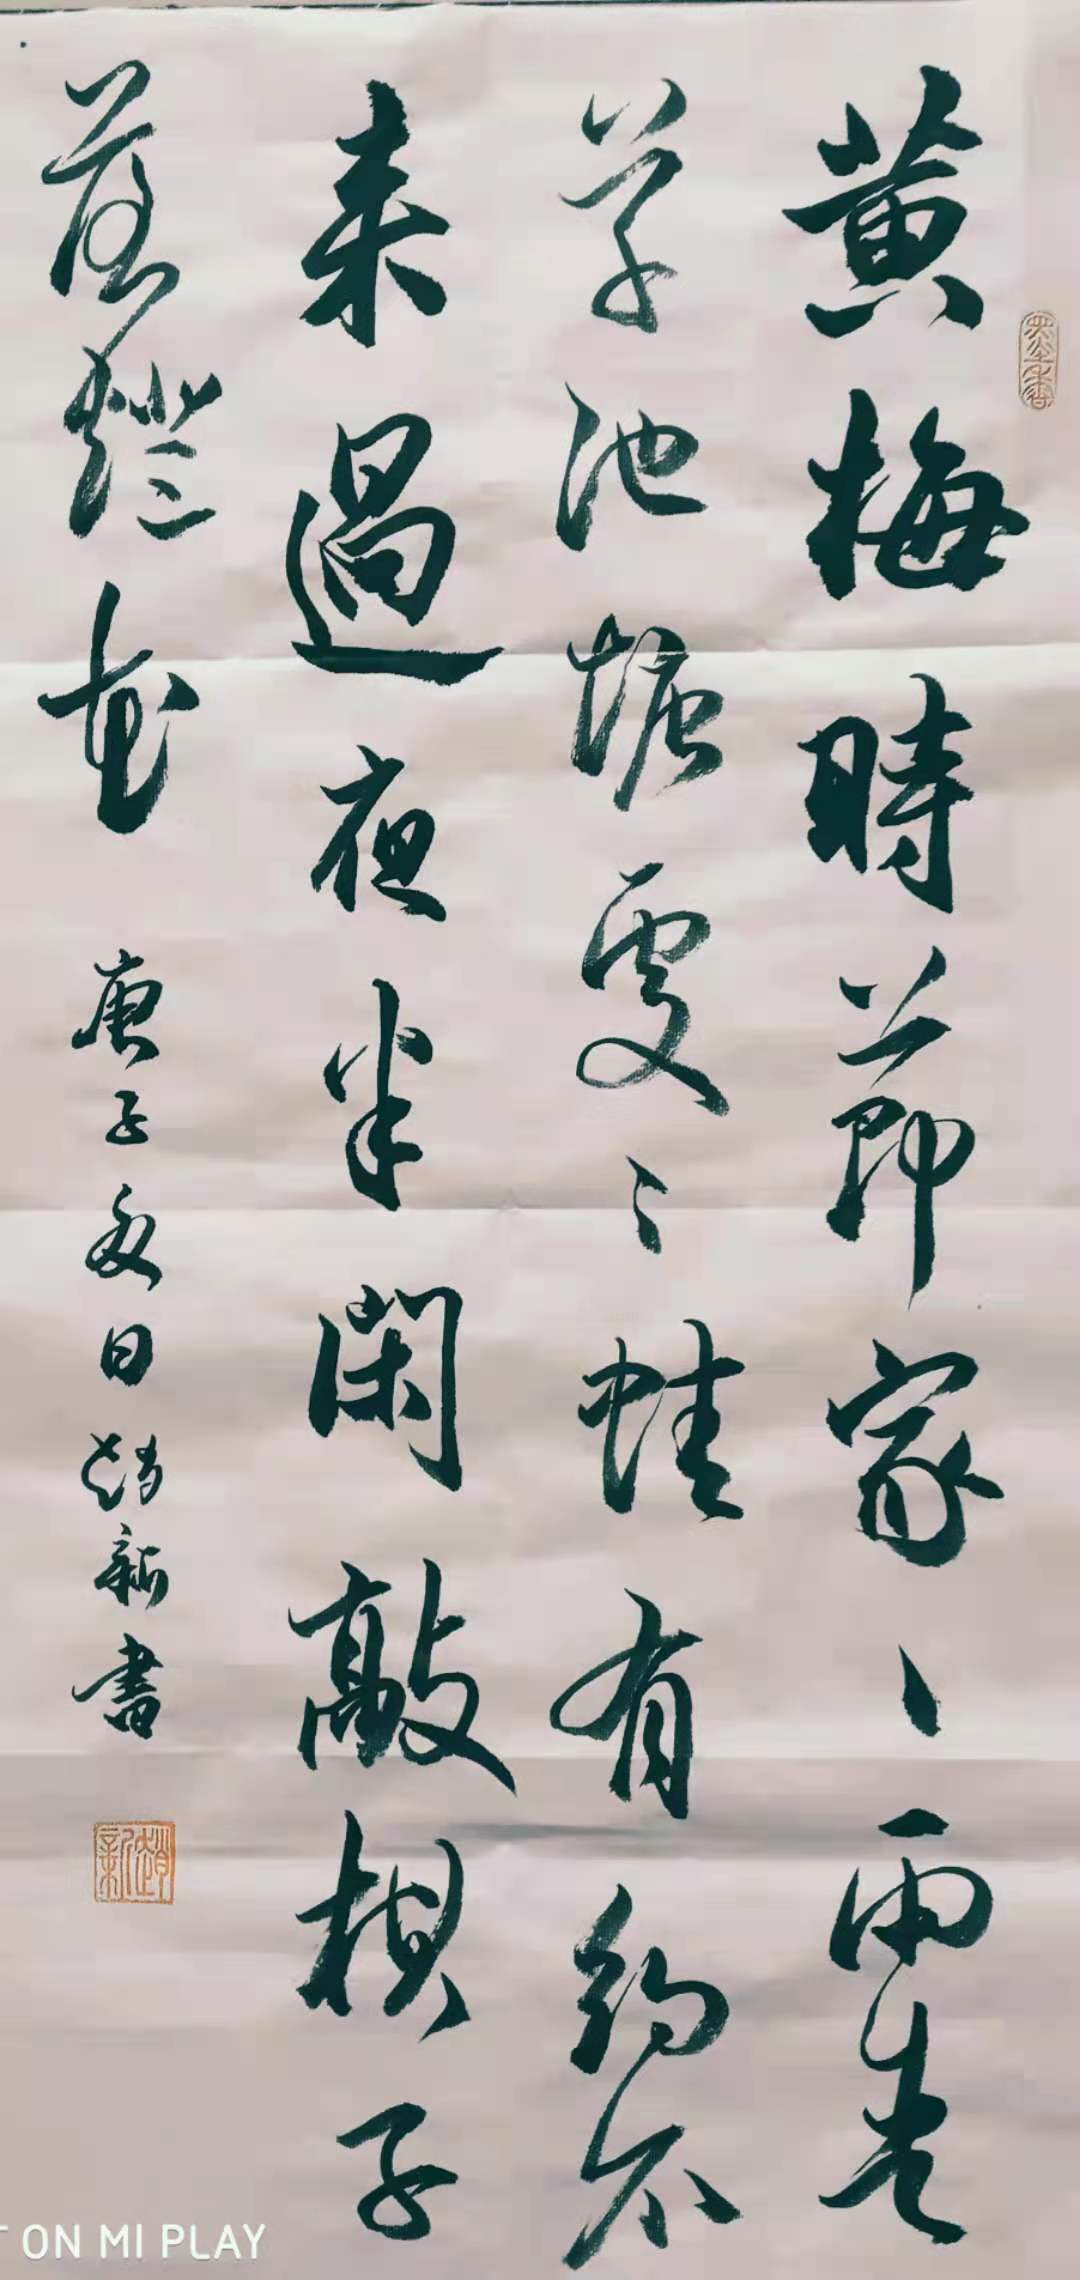 墨香
黄梅時節家〻雨青
草池塘處〻蛙有約不
来過夜半閑敲棋子
落燈花 庚子夏日趙新書
趙新
T ON MI PLAY